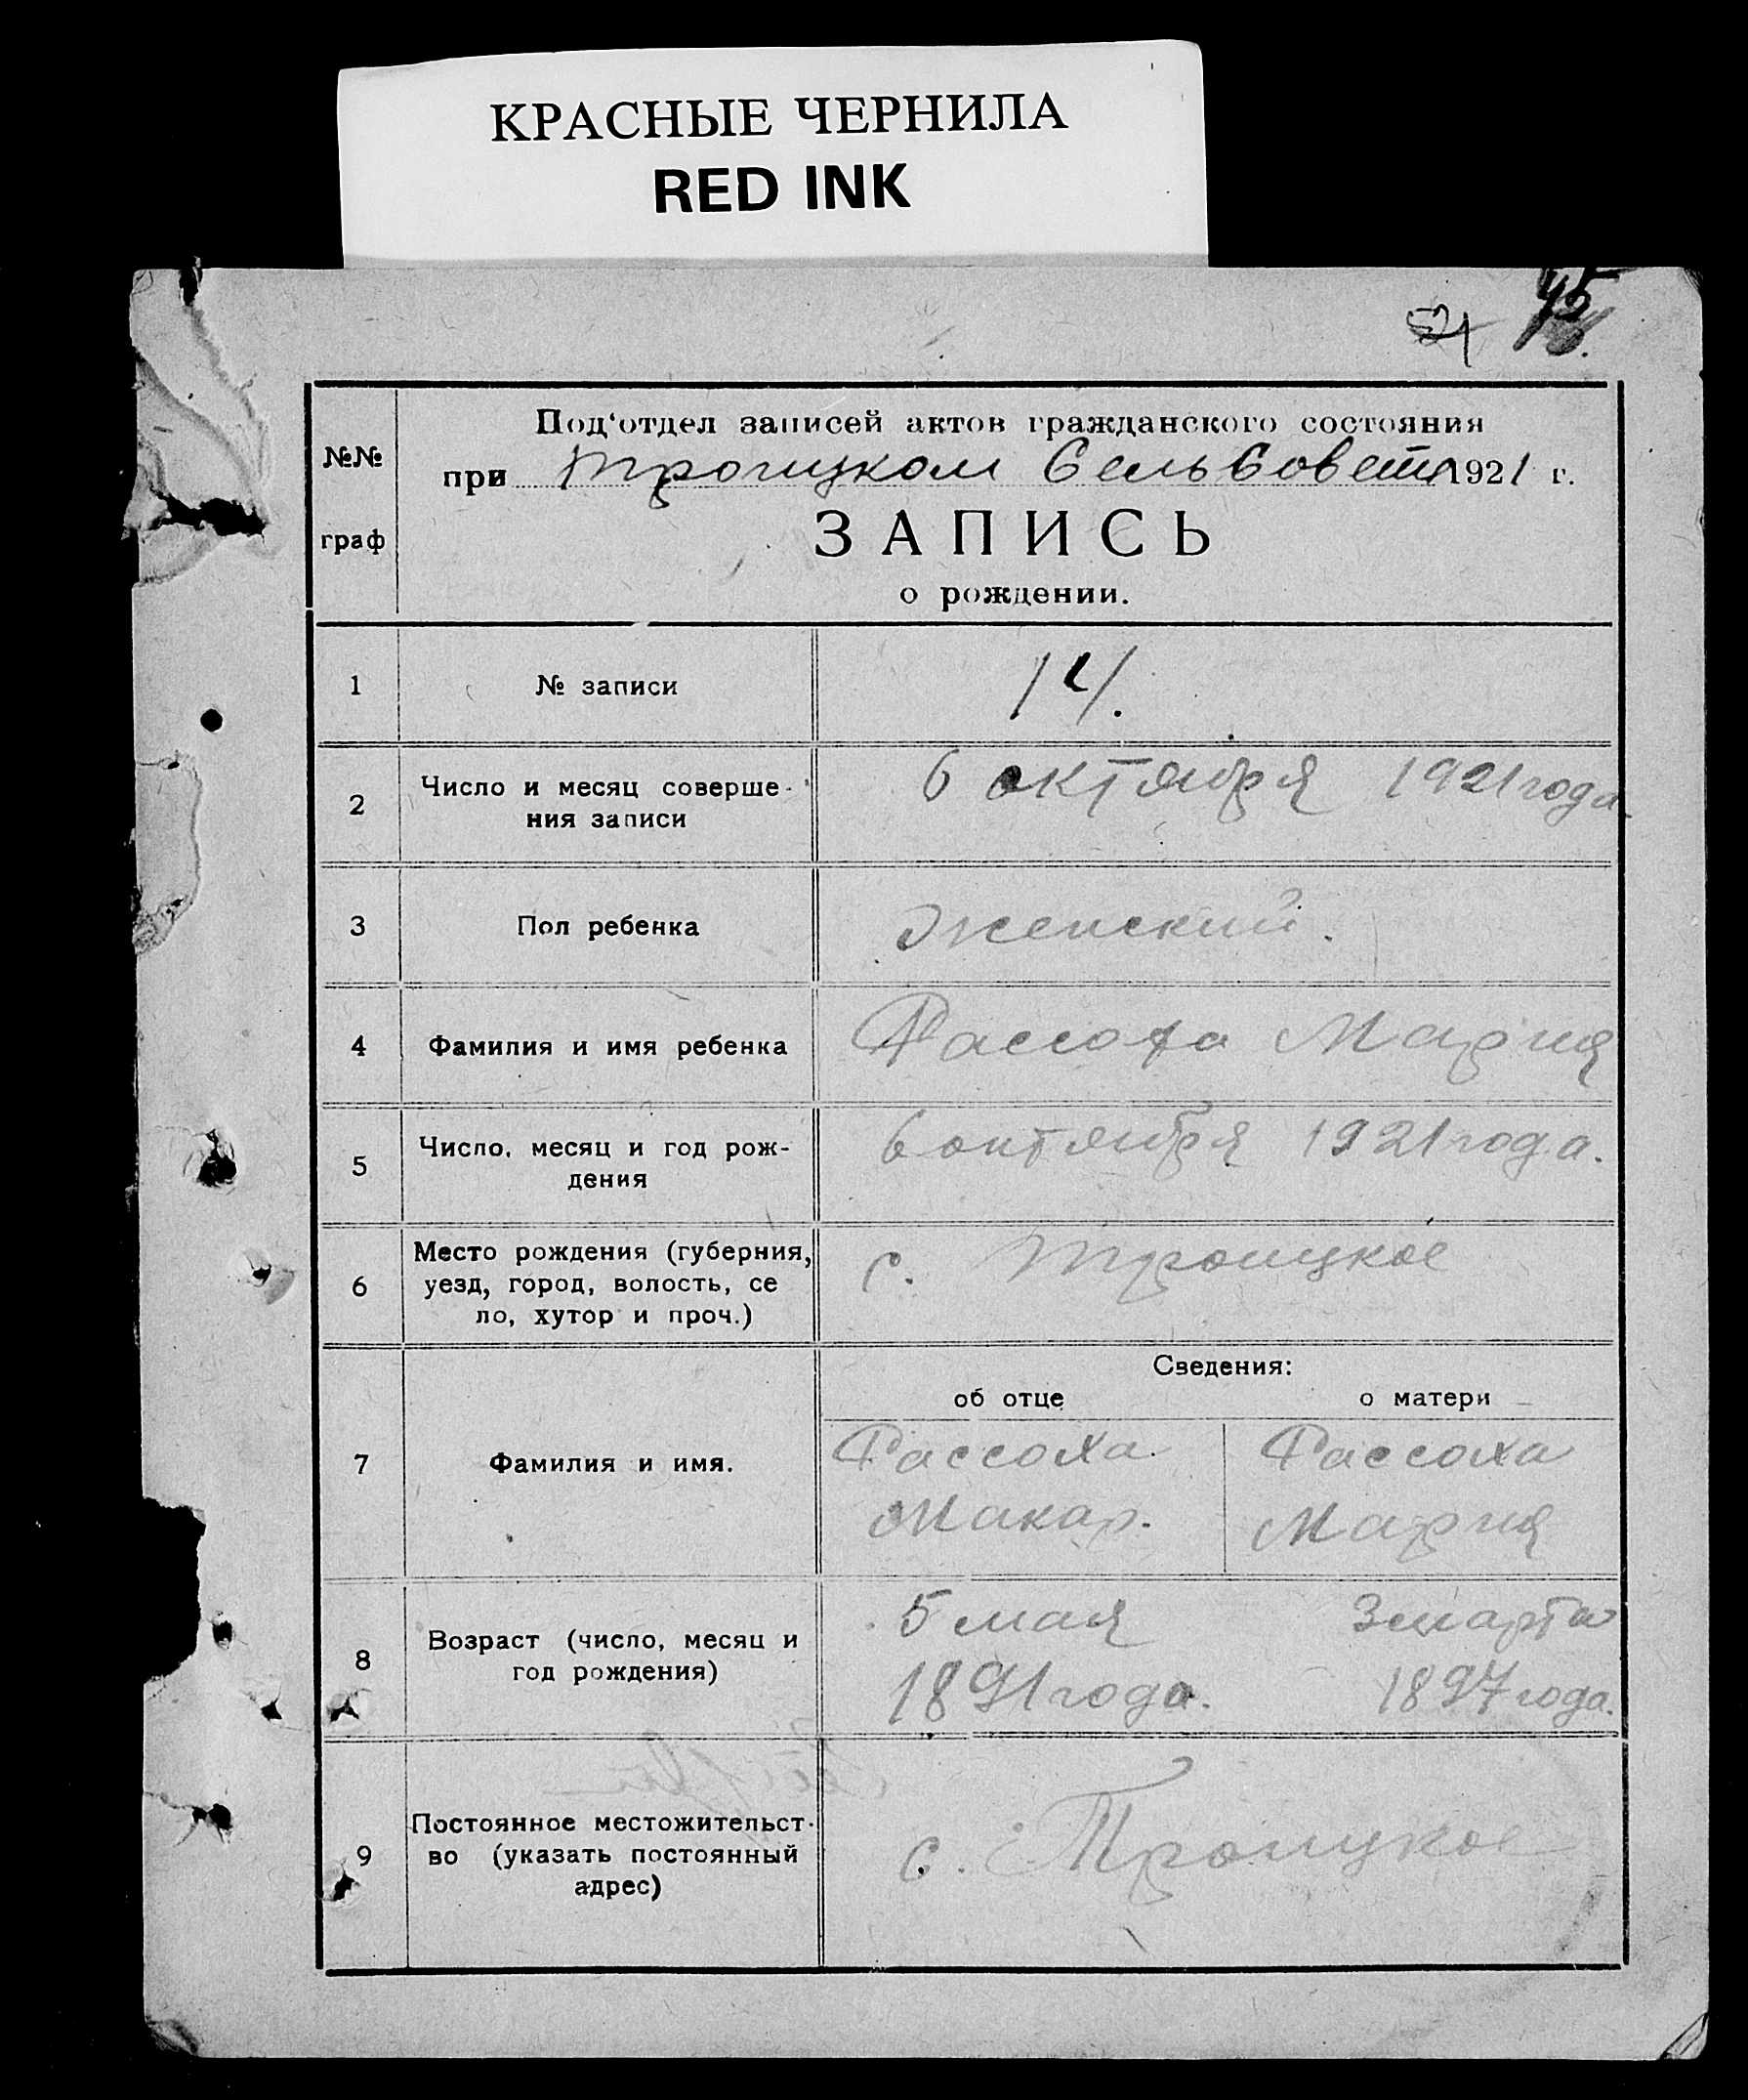 КРАСНЫЕ ЧЕРНИЛА
RED INK
45
21
№№ граф
Под‘отдел записей актов гражданского состояния
при Троицком Сельсовете 1921 г.
ЗАПИСЬ
о рождении.
1 № записи 14.
2 Число и месяц соверше-
ния записи 6 октября 1921 года
3 Пол ребенка Женский.
4 Фамилия и имя ребенка Рассоха Мария
5 Число, месяц и год рож-
дения 6 октября 1921 года.
6 Место рождения (губерния,
уезд, город, волость, се
ло, хутор и проч.) с. Троицкое
Сведения:
об отце о матери
7 Фамилия и имя. Рассоха Рассоха
Макар. Мария
8 Возраст (число, месяц и
год рождения) 5 мая 3 марта
1891 года. 1897 года.
9 Постоянное местожительст-
во (указать постоянный
адрес) с. Троицкое